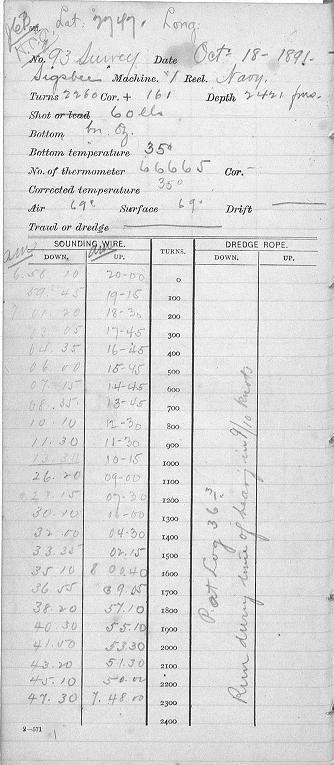 Lat: Long:
No. 93 Survey Date Oct. 18-1891.
Sigsbee Machine. #1 Reel. Navy.
Turns 2260 Cor. + 161 Depth 2421 fms.
Shot or lead 60 lbs
Bottom br. Oz.
Bottom temperature 35°
No. of thermometer 66665 Cor. -
Corrected temperature 35°
Air 69° Surface 69° Drift
Trawl or dredge
am SOUNDING WIRE. am TURNS. DREDGE ROPE.
DOWN. UP. DOWN. UP.
6.58 10 20-00 0
59.45 19-15 100
7 01.20 18-30 200
03 05 17-45 300
04.35 16-45 400
06 00 15-45 500
07.15 14-45 600
08.35 13-45 700
10 10 12-30 800
11.30 11-30 900
10-15 1000
26.20 09-00 1100
07-30 1200
30.10 06-00 1300
32.00 04-30 1400
33.35 02.15 1500
35.10 8 00.40 1600
36.55 59.05 1700
38.20 57.10 1800
40.30 55.10 1900
41.50 53.30 2000
43.20 51.30 2100
45.10 50.00 2200
47.30 7.48.00 2300
2400
Pat Log 36.3
Run during time of heaving in 9/10 knots
2-571